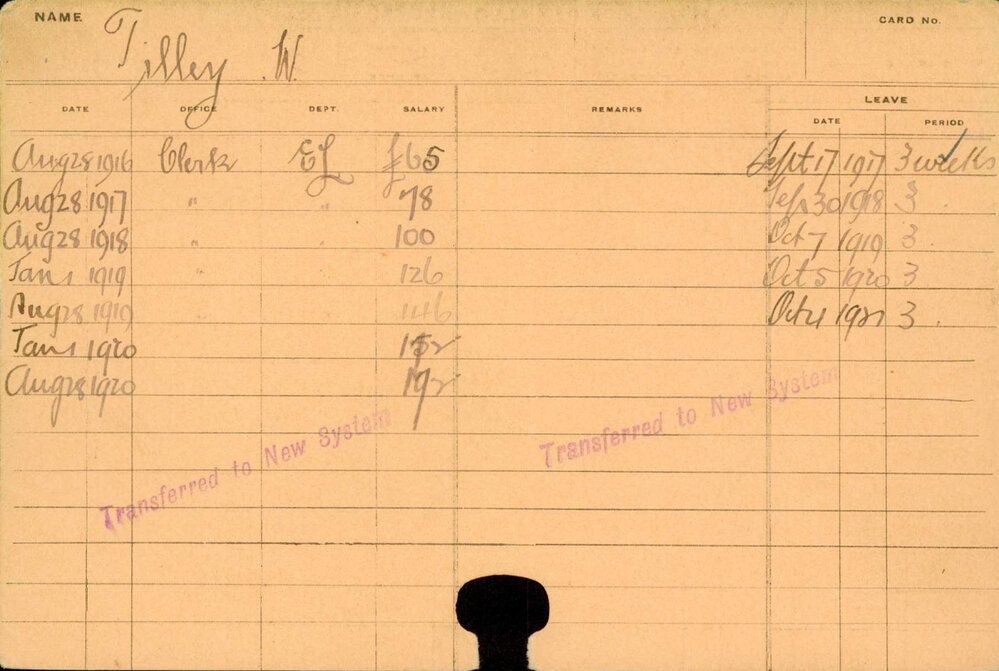 NAME Tilley W. CARD No.
DATE OFFICE DEPT. SALARY REMARKS LEAVE
DATE PERIOD
Aug 28 1916 Clerk EL £65 Sept 17 1917 3 weeks
Aug 28 1917 " " 78 Sep 30 1918 3
Aug 28 1918 " " 100 Oct 7 1919 3
Jan 1 1919 " 126 Oct 5 1920 3
Aug 28 1919 146 Oct 4 1921 3
Jan 1 1920
Aug 28 1920
Transferred to New System
Transferred to New System